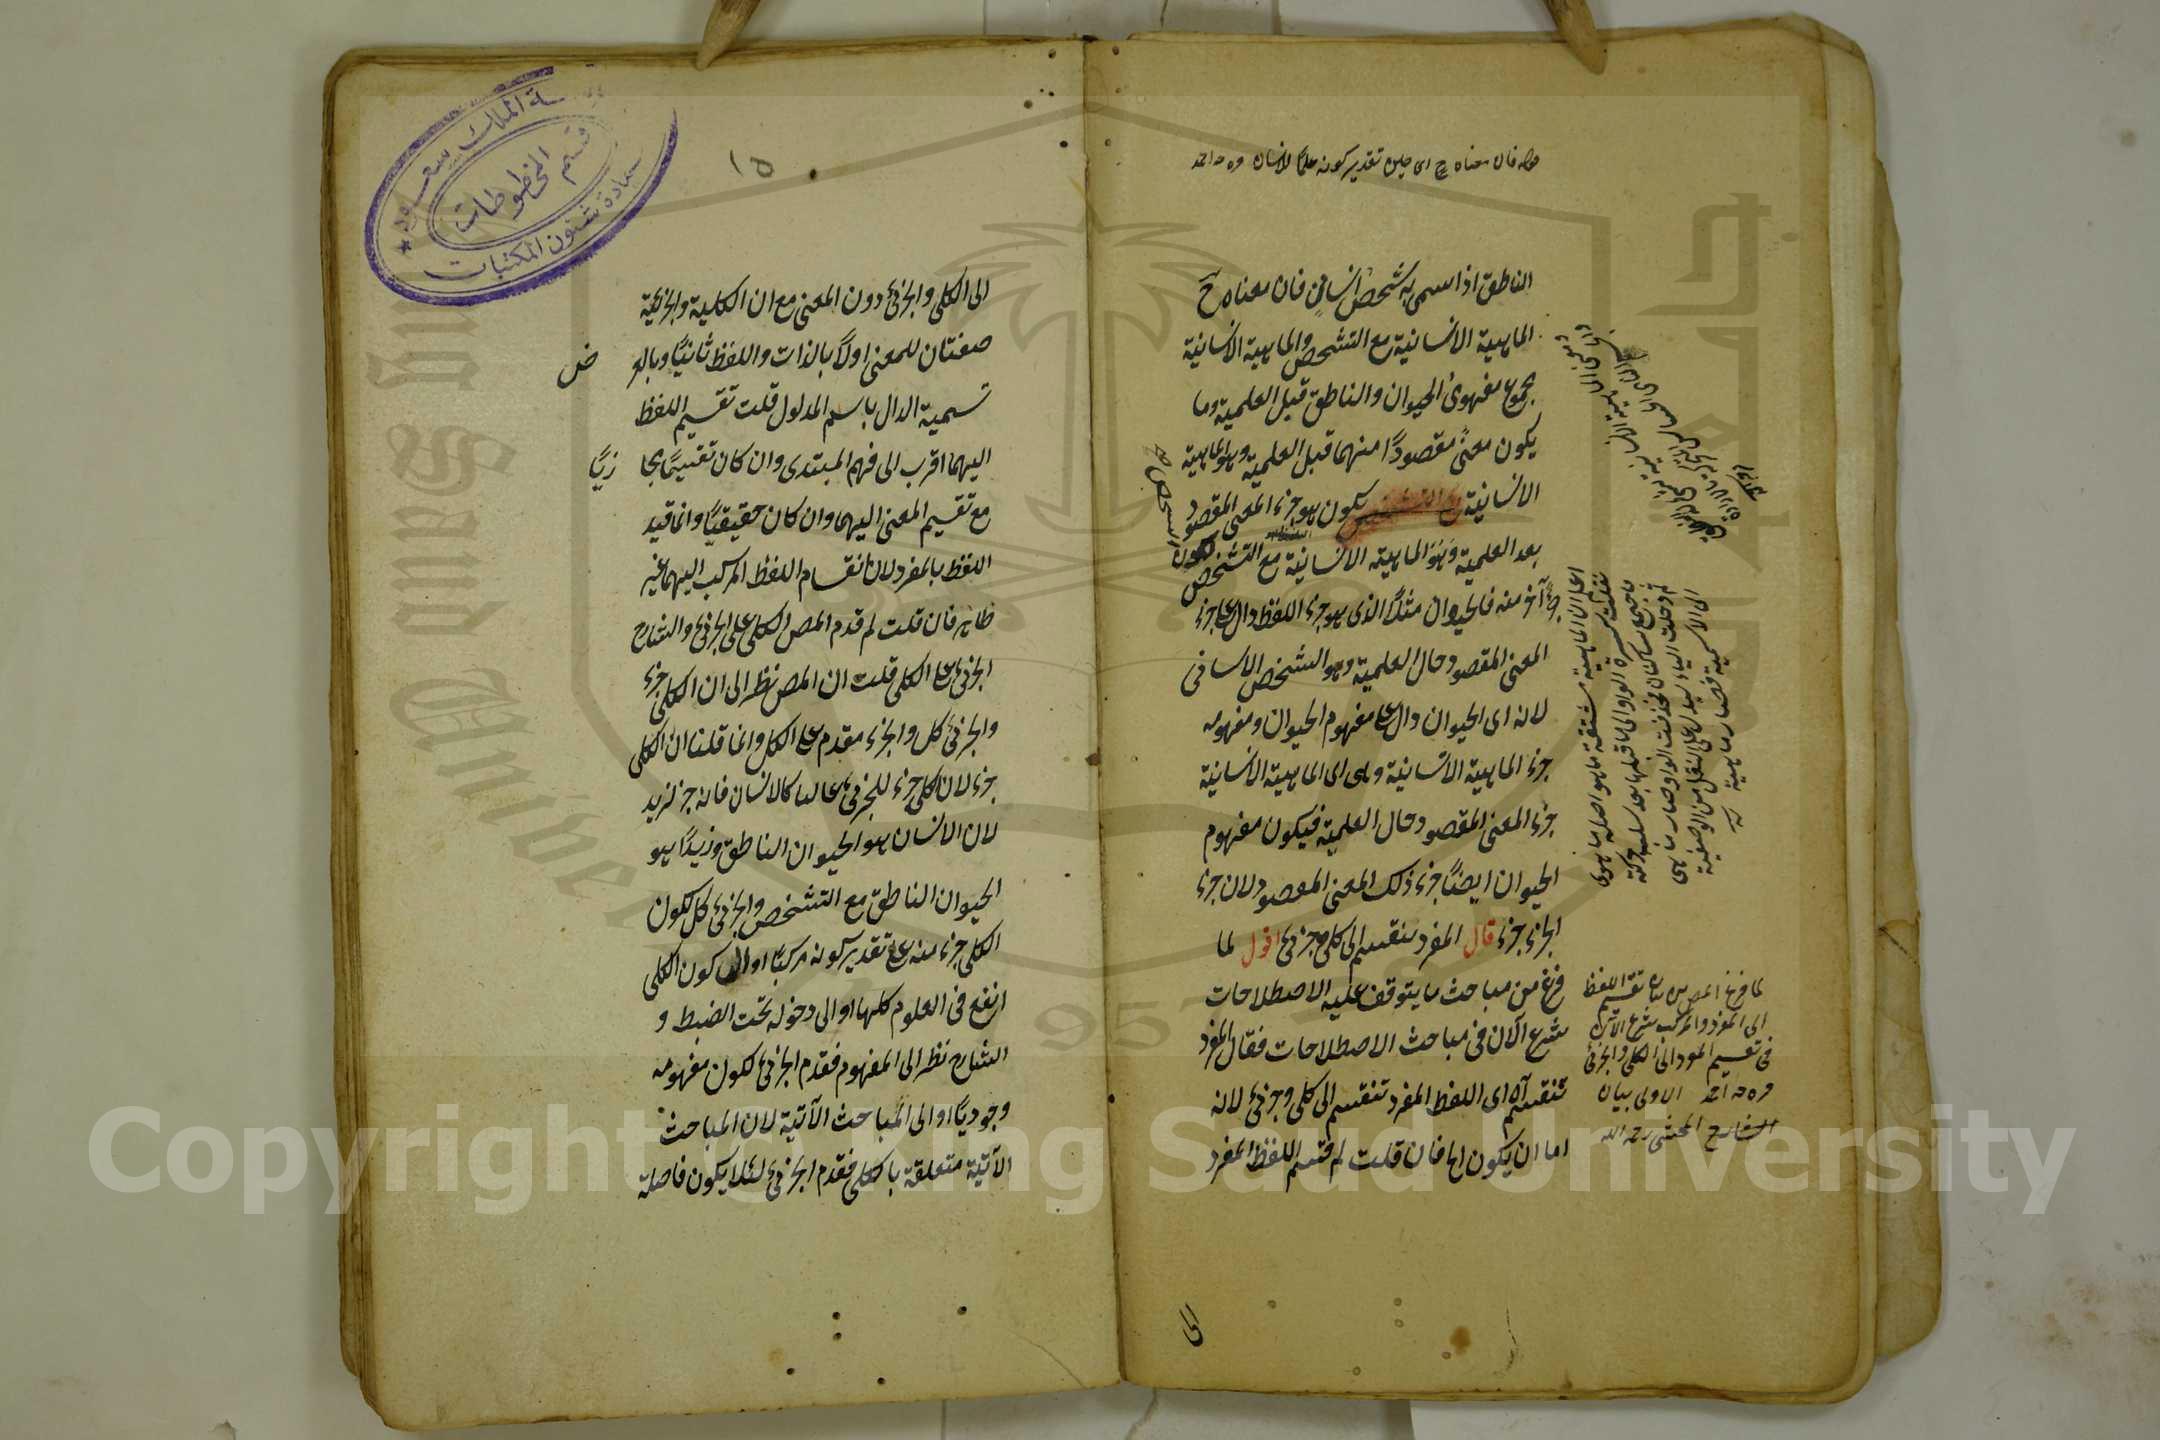 قوله فان معناه ح اى حين تقدير كونه علما للانسان قره احمد
الناطق اذا سمى به شخص انسانى فان معناه ح
الماهية الانسانية مع التشخص والماهية الانسانية
مجموع مفهومى الحيوان والناطق قبل العلمية وما
يكون معنى مقصودًا منهما قبل العلمية وهو الماهية
الانسانية يكون هو جزء المعنى المقصود
بعد العلمية وهو الماهية الانسانية مع التشخص
آخر منه فالحيوان مثلًا الذى هو جزء اللفظ دال على جزء
المعنى المقصود حال العلمية وهو الشخص الانسانى
لانه اى الحيوان دال على مفهوم الحيوان ومفهومه
جزء الماهية الانسانية وهى اى الماهية الانسانية
جزء المعنى المقصود حال العلمية فيكون مفهوم
الحيوان ايضًا جزء ذلك المعنى المقصود لان جزء
الجزء جزء قال المفرد ينقسم الى كلى وجزئى اقول لما
فرغ من مباحث ما يتوقف عليه الاصطلاحات
شرع الآن فى مباحث الاصطلاحات فقال المفرد
تنقسم آه اى اللفظ المفرد تنقسم الى كلى وجزئى لانه
اما ان يكون اما فان قلت لم قسم اللفظ المفرد
اعلم ان الماهية مشتقة ما هو اصله ما هوى
نقلت كسرة الواو الى ما قبلها بعد سلب حركة
فاجتمع ساكنان فحذفت الواو صار ما هى
ثم دخلت التاء ليدل على النقل من الوصفية
الى الاسمية فصار ماهية
لما فرغ المص من بيان تقسيم اللفظ
الى المفرد والمركب شرع الآن
فى تقسيم المفرد الى الكلى والجزئى
قره احمد الاولى بيان
الشارح المحشى رحمه الله
الى
١٥
الى الكلى والجزئى دون المعنى مع ان الكلية والجزئية
صفتان للمعنى اولًا بالذات واللفظ ثانيًا وبالعرض
تسمية الدال باسم المدلول قلت تقسيم اللفظ
اليهما اقرب الى فهم المبتدى وان كان تقسيمًا مجازيًا
مع تقسيم المعنى اليهما وان كان حقيقيًا وانما قيد
اللفظ بالمفرد لان انقسام اللفظ المركب اليهما غير
ظاهر فان قلت لم قدم المص الكلى على الجزئى والشارح
الجزئى على الكلى قلت ان المص نظر الى ان الكلى جزء
والجزئى كل والجزء مقدم على الكل وانما قلنا ان الكلى
جزء لان الكلى جزء للجزئى غالبا كالانسان فانه جزء لزيد
لان الانسان هو الحيوان الناطق وزيدًا هو
الحيوان الناطق مع التشخص والجزئى كل لكون
الكلى جزء منه على تقدير كونه مركبًا او الى كون الكلى
انفع فى العلوم كلها او الى دخوله تحت الضبط و
الشارح نظر الى المفهوم فقدم الجزئى لكون مفهومه
وجوديًا او الى المباحث الآتية لان المباحث
الآتية متعلقة بالكلى فقدم الجزئى لئلا يكون فاصلة
الملك سعود
قسم المخطوطات
عمادة شئون المكتبات
Copyright © King Saud University